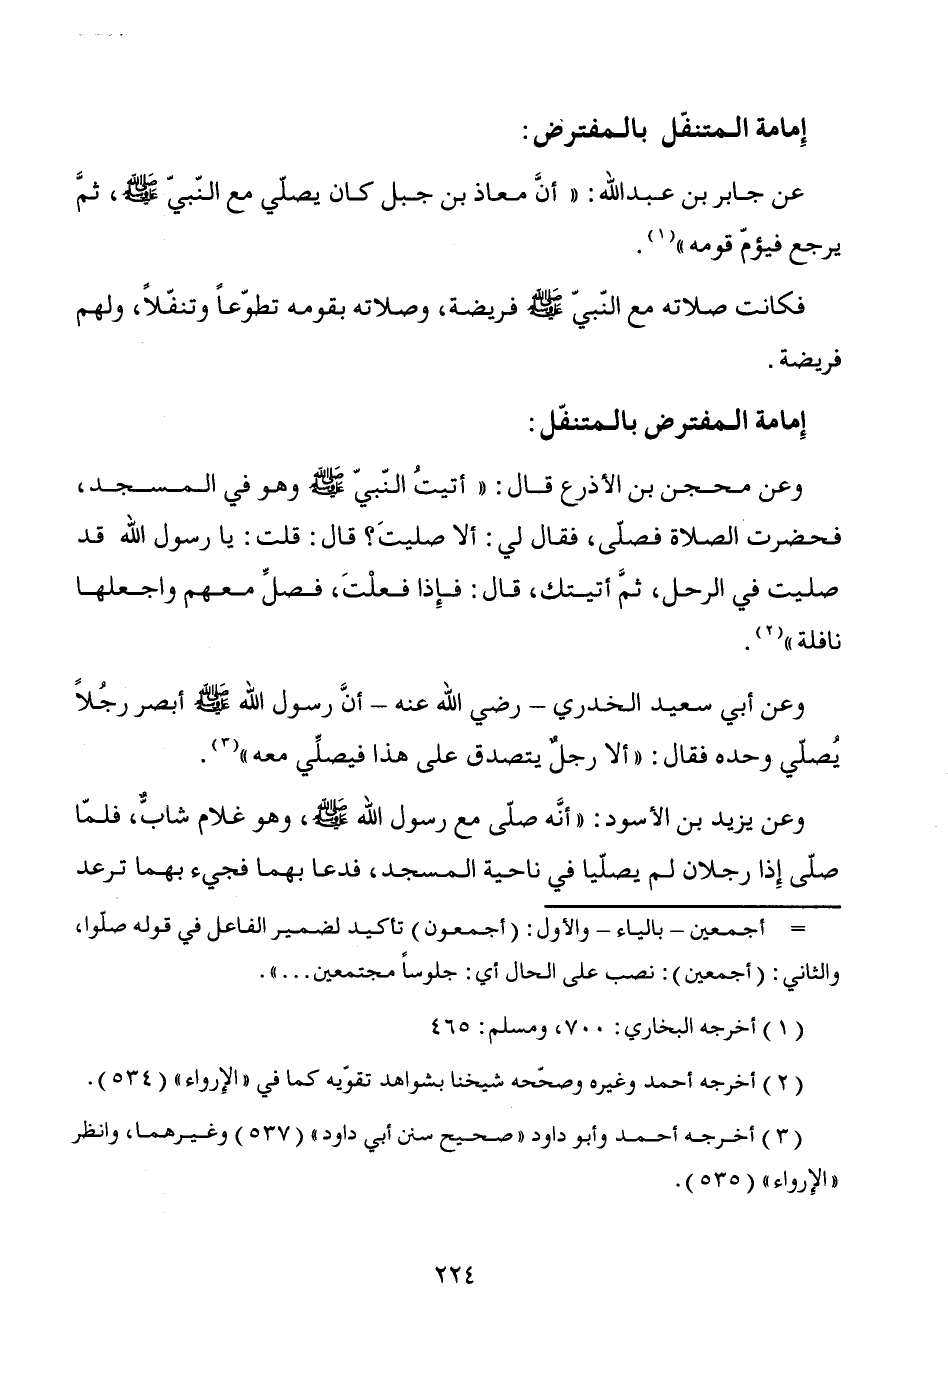 إمامة المتنفّل بالمفترض:
عن جابر بن عبدالله: «أنَّ معاذ بن جبل كان يصلّي مع النّبيّ ﷺ، ثمَّ
يرجع فيؤمّ قومه»(١).
فكانت صلاته مع النّبيّ ﷺ فريضة، وصلاته بقومه تطوّعاً وتنفّلاً، ولهم
فريضة.
إمامة المفترض بالمتنفّل:
وعن محجن بن الأذرع قال: «أتيتُ النّبيّ ﷺ وهو في المسجد،
فحضرت الصلاة فصلّى، فقال لي: ألا صليتَ؟ قال: قلت: يا رسول الله قد
صليت في الرحل، ثمَّ أتيتك، قال: فإذا فعلْتَ، فصلِّ معهم واجعلها
نافلة»(٢).
وعن أبي سعيد الخدري - رضي الله عنه - أنَّ رسول الله ﷺ أبصر رجُلاً
يُصلّي وحده فقال: «ألا رجلٌ يتصدق على هذا فيصلِّي معه»(٣).
وعن يزيد بن الأسود: «أنَّه صلّى مع رسول الله ﷺ، وهو غلام شابٌّ، فلمّا
صلّى إذا رجلان لم يصلّيا في ناحية المسجد، فدعا بهما فجيء بهما ترعد
= أجمعين - بالياء - والأول: (أجمعون) تأكيد لضمير الفاعل في قوله صلّوا،
والثاني: (أجمعين): نصب على الحال أي: جلوساً مجتمعين...».
(١) أخرجه البخاري: ٧٠٠، ومسلم: ٤٦٥
(٢) أخرجه أحمد وغيره وصحّحه شيخنا بشواهد تقوّيه كما في «الإرواء» (٥٣٤).
(٣) أخرجه أحمد وأبو داود «صحيح سنن أبي داود» (٥٣٧) وغيرهما، وانظر
«الإرواء» (٥٣٥).
٢٢٤